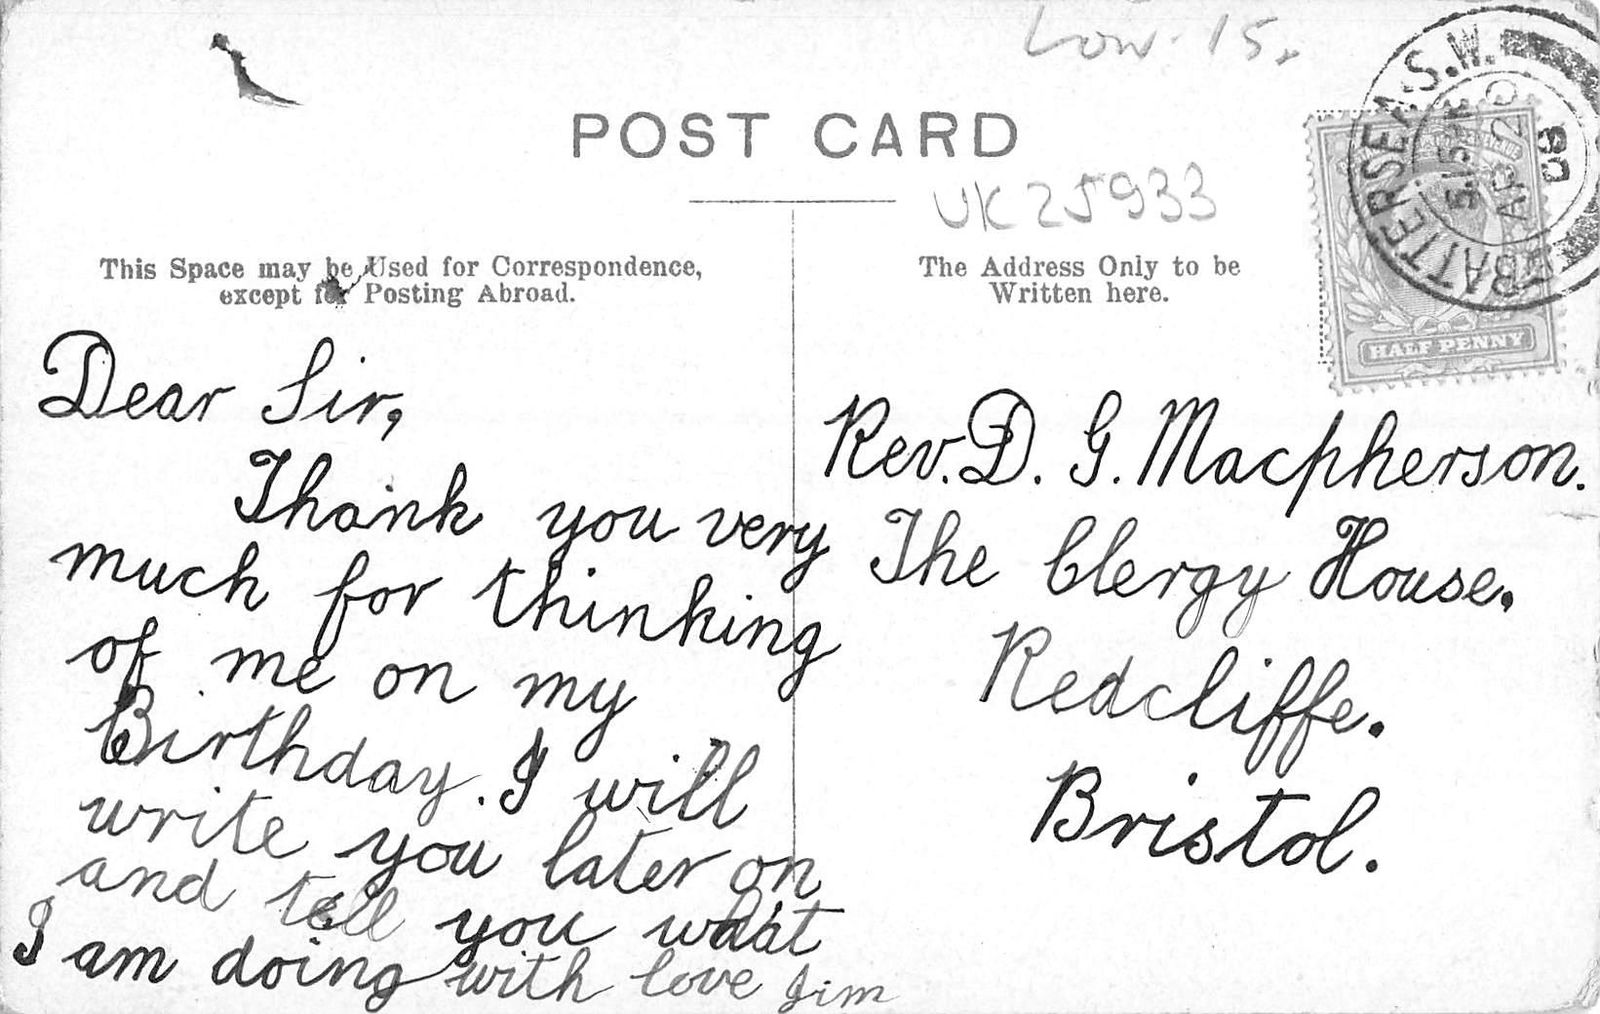 Low. 15.
POST CARD
UK 25933
BATTERSEA S.W.
5.15
AP 2
08
HALF PENNY
This Space may be Used for Correspondence,
except for Posting Abroad.
The Address Only to be
Written here.
Dear Sir,
Thank you very
much for thinking
of me on my
Birthday. I will
write you later on
and tell you
I am doing with love Jim
Rev. D. G. Macpherson.
The Clergy House.
Redcliffe.
Bristol.